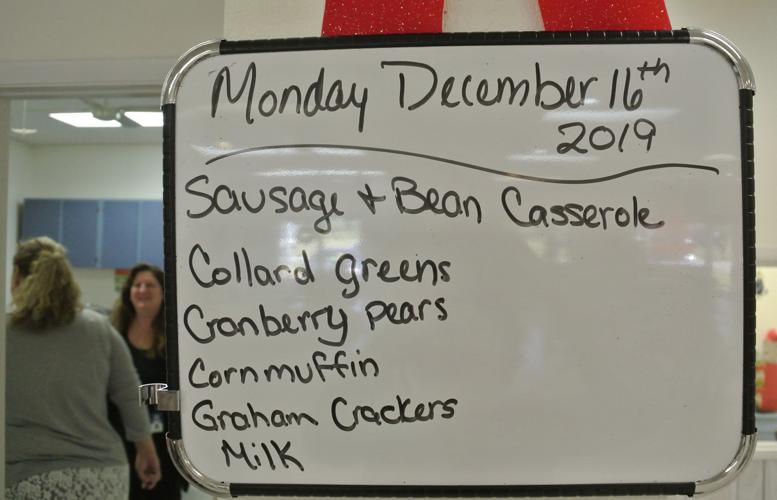 Monday December 16th
2019
Sausage + Bean Casserole
Collard greens
Cranberry pears
Cornmuffin
Graham Crackers
Milk